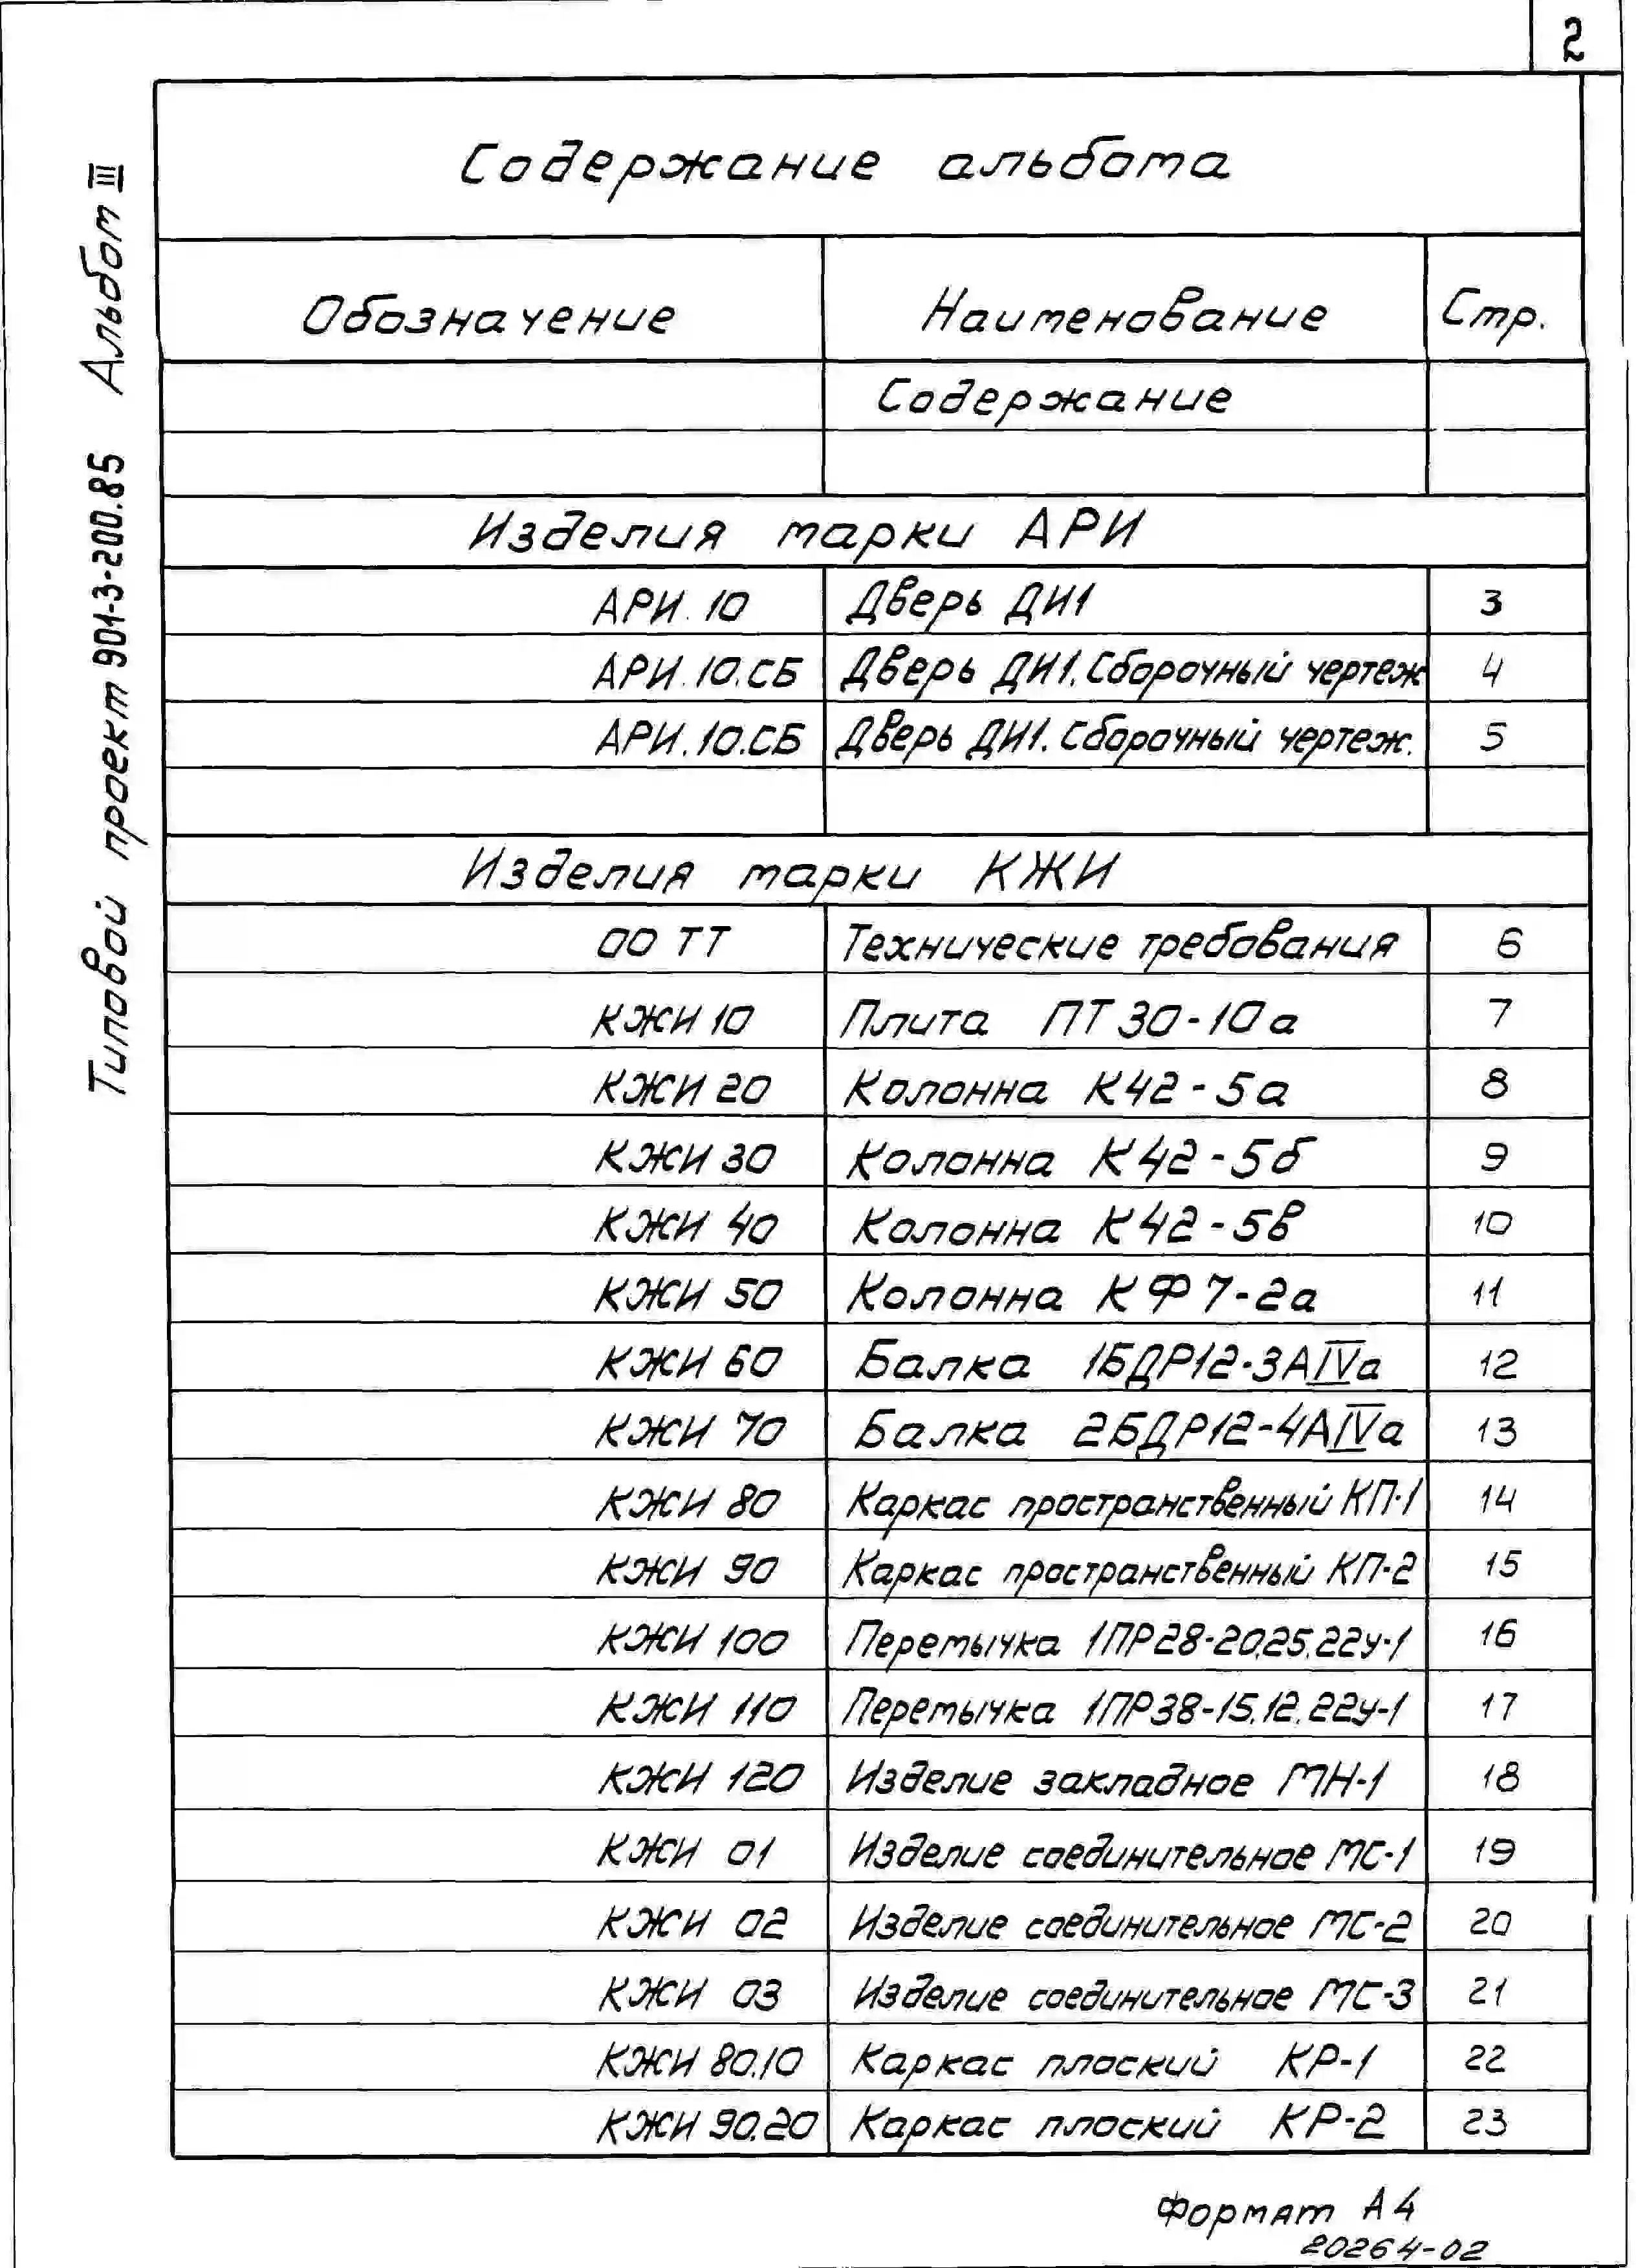 2
Типовой проект 901-3-200.85 Альбом III
Содержание альбома
Обозначение Наименование Стр.
Содержание
Изделия марки АРИ
АРИ.10 Дверь ДИ1 3
АРИ.10.СБ Дверь ДИ1. Сборочный чертеж 4
АРИ.10.СБ Дверь ДИ1. Сборочный чертеж. 5
Изделия марки КЖИ
00 ТТ Технические требования 6
КЖИ 10 Плита ПТ 30-10а 7
КЖИ 20 Колонна К42-5а 8
КЖИ 30 Колонна К42-5б 9
КЖИ 40 Колонна К42-5в 10
КЖИ 50 Колонна КФ7-2а 11
КЖИ 60 Балка 1БДР12-3АIVа 12
КЖИ 70 Балка 2БДР12-4АIVа 13
КЖИ 80 Каркас пространственный КП-1 14
КЖИ 90 Каркас пространственный КП-2 15
КЖИ 100 Перемычка 1ПР28-20.25.22у-1 16
КЖИ 110 Перемычка 1ПР38-15.12.22у-1 17
КЖИ 120 Изделие закладное МН-1 18
КЖИ 01 Изделие соединительное МС-1 19
КЖИ 02 Изделие соединительное МС-2 20
КЖИ 03 Изделие соединительное МС-3 21
КЖИ 80.10 Каркас плоский КР-1 22
КЖИ 90.20 Каркас плоский КР-2 23
Формат А4
20264-02